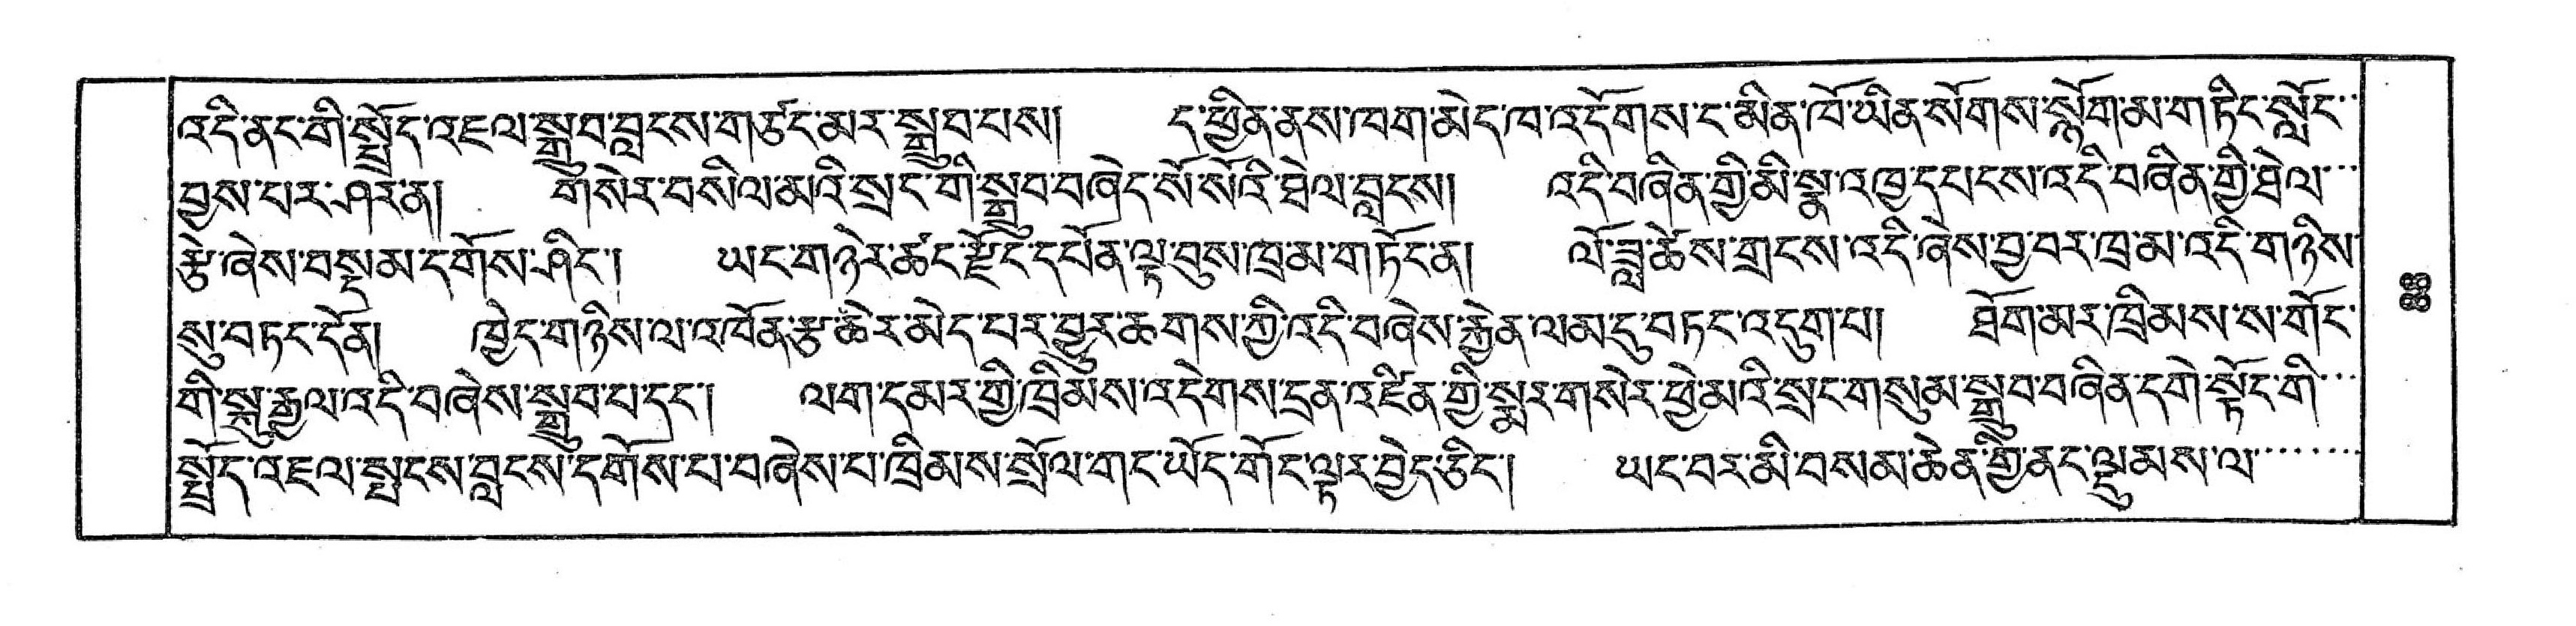 འདི་ནང་གི་སྤྲོད་འཇལ་སྒྲུབ་བླངས་གཙང་མར་སྒྲུབ་པས། ད་ཕྱིན་ནས་ཁག་མེད་ཁ་འདོགས་ང་མིན་ཁོ་ཡིན་སོགས་སྙོག་མ་གཏིང་སློང་
བྱས་པར་ཤར་ན། གསེར་བསིལ་མའི་སྲང་གི་སྒྲུབ་བཞེད་སོ་སོའི་ཐེལ་བླངས། འདི་བཞིན་གྱི་མི་སྣ་འཁྱ་དཔངས་འདི་བཞིན་གྱི་ཐེལ་
རྩེ་ཞེས་བསྡམ་དགོས་ཤིང་། ཡང་གཉེར་ཚང་རྫོང་དཔོན་ལྟ་བུས་ཁྲམ་གཏོང་ན། ལོ་ཟླ་ཚེས་གྲངས་འདི་ཞེས་བྱ་བར་ཁྲ་མ་འདི་གཉིས་
སུ་བཏང་དོན། ཁྱེད་གཉིས་ལ་འཁོན་རྩ་ཆེར་མེད་པར་བྱུར་ཆགས་ཀྱི་འདི་བཞེས་རྐྱེན་ལམ་དུ་བཏང་འདུག་པ། ཐོག་མར་ཁྲིམས་ས་གོང་
གི་སྐུ་རྒྱལ་འདི་བཞེས་སྒྲུབ་པ་དང་། ལག་དམར་གྱི་ཁྲིམས་འདེགས་དྲན་འཛིན་གྱི་སྨར་གསེར་ཕྱེ་མའི་སྲང་གསུམ་སྒྲུབ་བཞིན་དགེ་སྟོང་གི་
སྤྲོད་འཇལ་སྤངས་བླངས་དགོས་པ་བཞེས་པ་ཁྲིམས་སྲོལ་གང་ཡོད་གོང་ལྟར་བྱེད་ཅིང་། ཡང་བར་མི་བསམ་ཆེན་གྱི་ནང་ལྷུམས་ལ་
༔༔